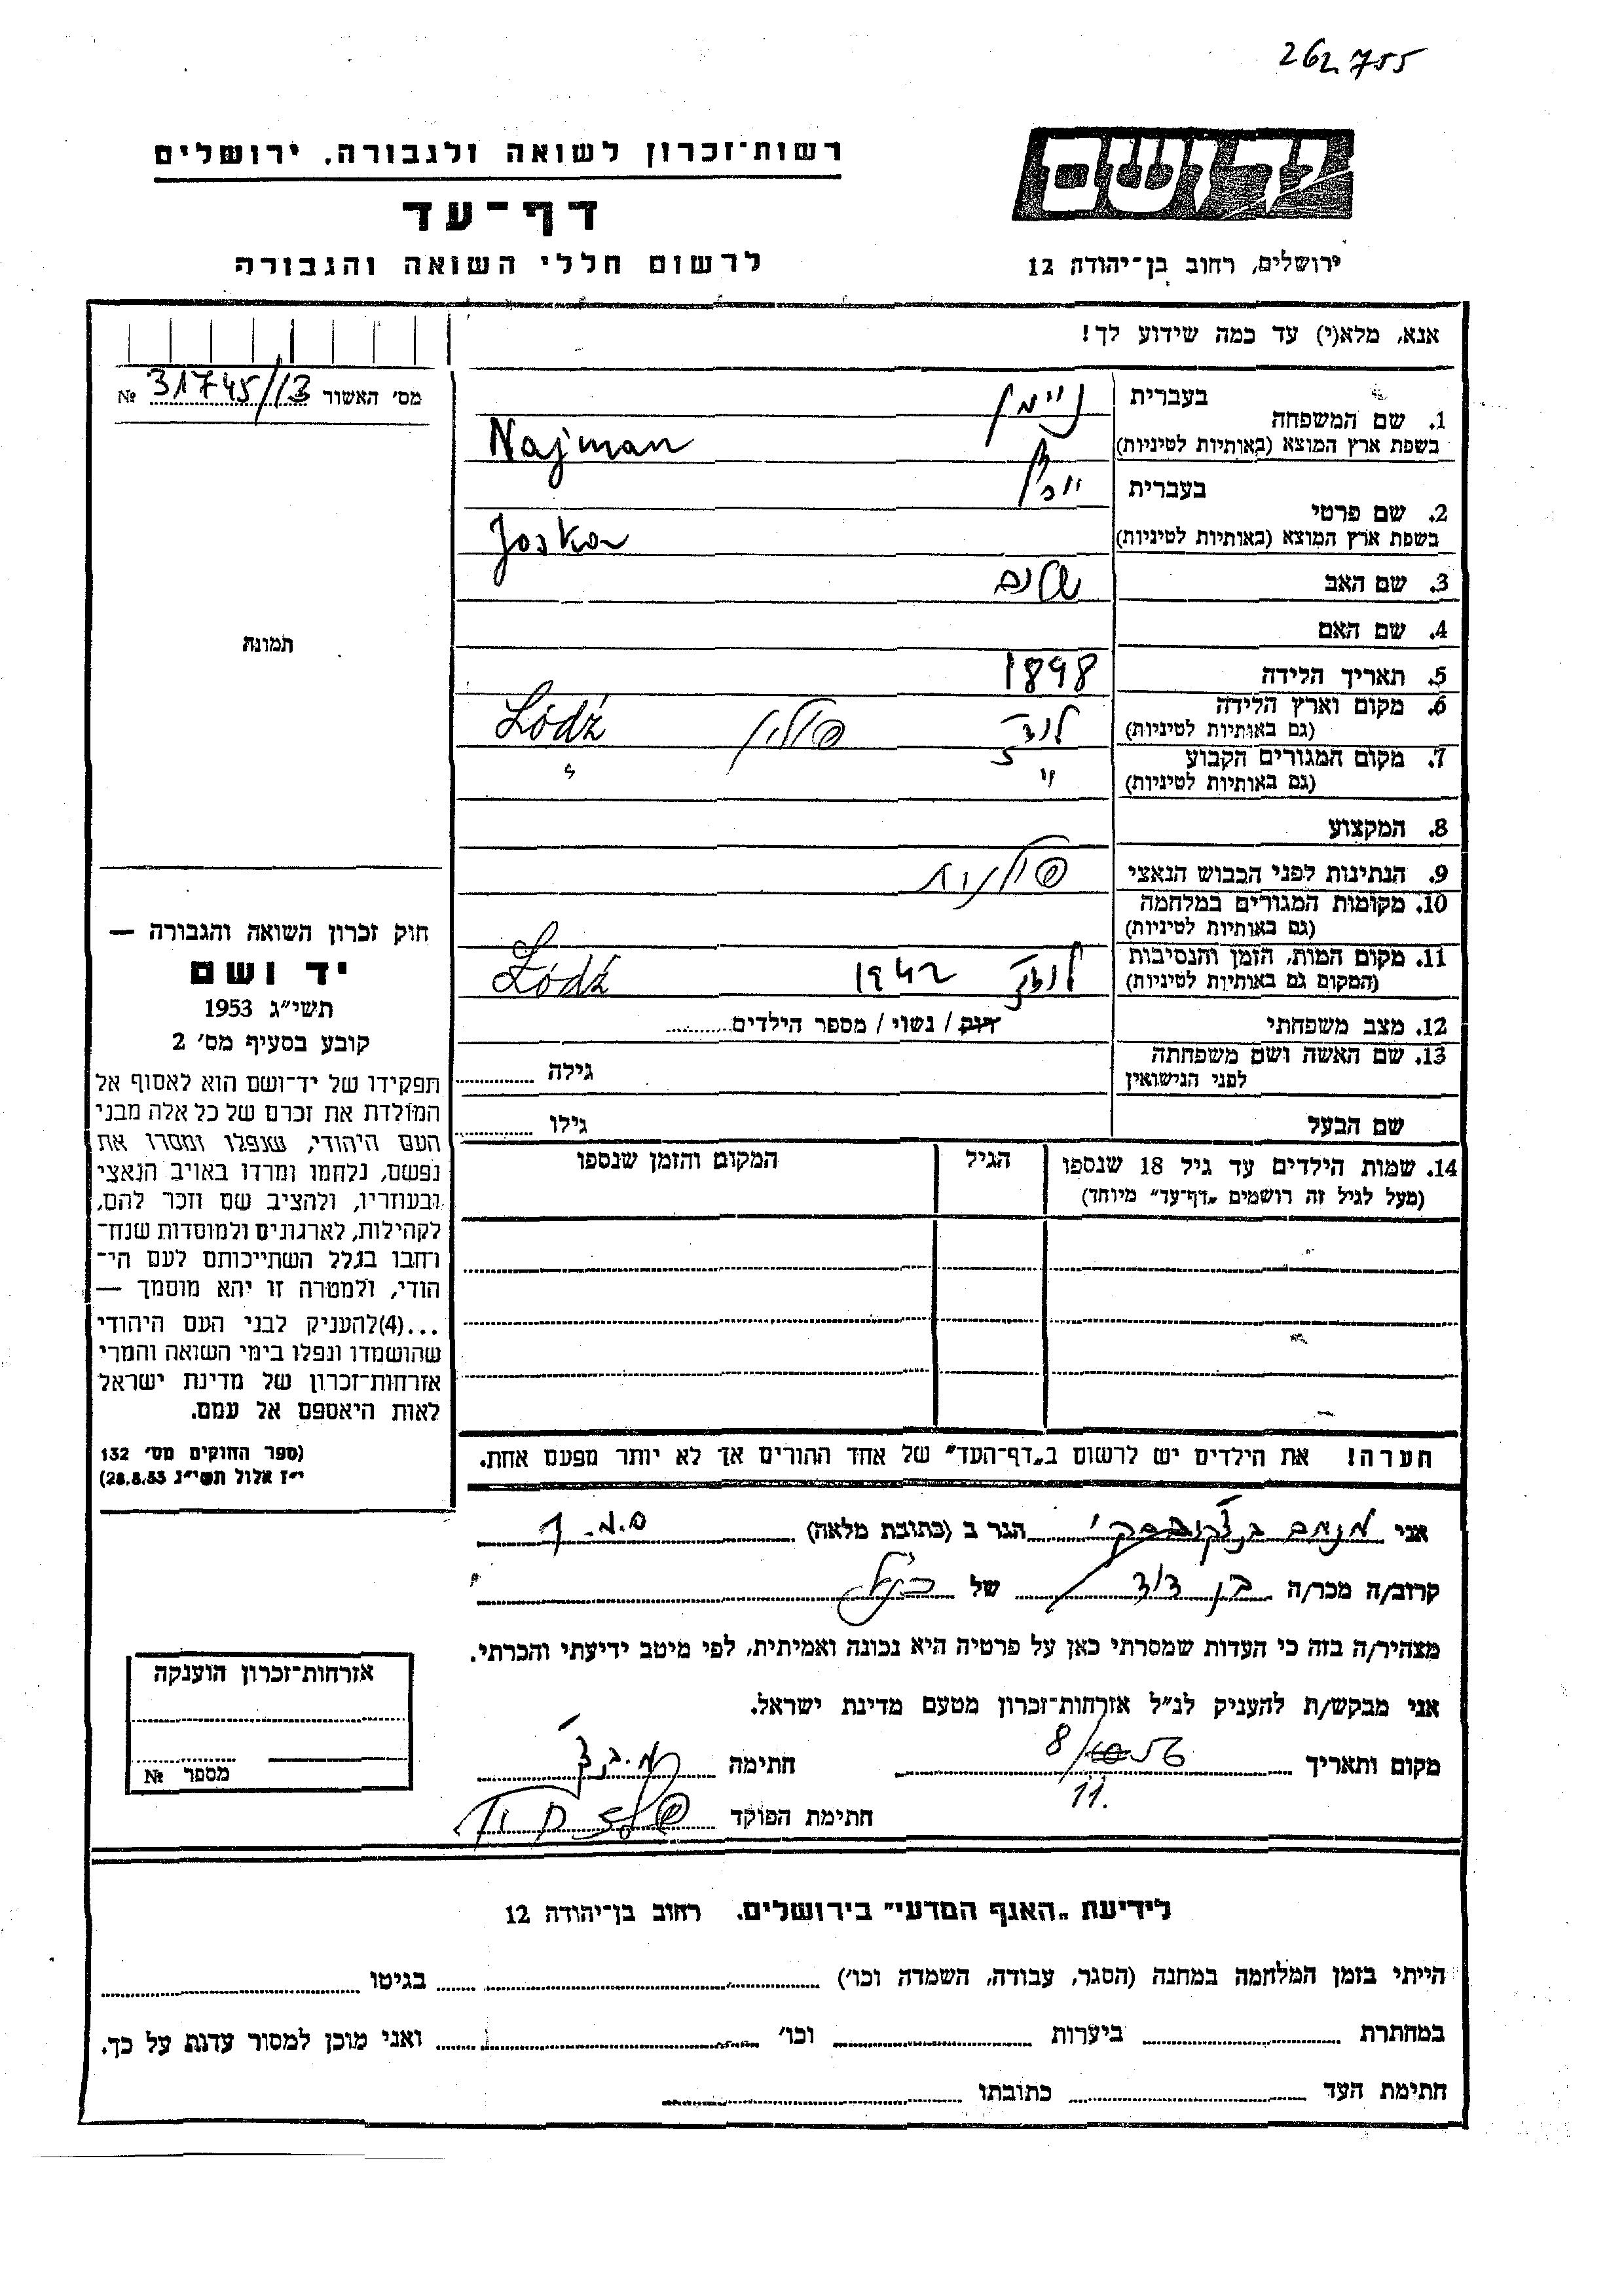 262755
ידושם
רשות־זכרון לשואה ולגבורה, ירושלים
דף־עד
לרשום חללי השואה והגבורה
ירושלים, רחוב בן־יהודה 12
אנא, מלא(י) עד כמה שידוע לך!
מס׳ האשור 31745/13 №
1. שם המשפחה
בעברית ניימן
בשפת ארץ המוצא (באותיות לטיניות) Najman
2. שם פרטי
בעברית
בשפת ארץ המוצא (באותיות לטיניות) Joska
3. שם האב
4. שם האם
5. תאריך הלידה 1898
6. מקום וארץ הלידה
(גם באותיות לטיניות) לודז פולין Łódź
7. מקום המגורים הקבוע
(גם באותיות לטיניות) " "
8. המקצוע
9. הנתינות לפני הכבוש הנאצי פולנית
10. מקומות המגורים במלחמה
(גם באותיות לטיניות)
11. מקום המות, הזמן והנסיבות
(המקום גם באותיות לטיניות) לודז 1942 Łódź
12. מצב משפחתי רווק / נשוי / מספר הילדים
13. שם האשה ושם משפחתה
לפני הנישואין גילה
שם הבעל גילו
14. שמות הילדים עד גיל 18 שנספו הגיל המקום והזמן שנספו
(מעל לגיל זה רושמים „דף־עד״ מיוחד)
הערה! את הילדים יש לרשום ב„דף־העד״ של אחד ההורים אך לא יותר מפעם אחת.
תמונה
חוק זכרון השואה והגבורה —
יד ושם
תשי״ג 1953
קובע בסעיף מס׳ 2
תפקידו של יד־ושם הוא לאסוף אל
המולדת את זכרם של כל אלה מבני
העם היהודי, שנפלו ומסרו את
נפשם, נלחמו ומרדו באויב הנאצי
ובעוזריו, ולהציב שם וזכר להם,
לקהילות, לארגונים ולמוסדות שנח־
רחבו בגלל השתייכותם לעם הי־
הודי, ולמטרה זו יהא מוסמך —
...(4)להעניק לבני העם היהודי
שהושמדו ונפלו בימי השואה והמרי
אזרחות־זכרון של מדינת ישראל
לאות היאספם אל עמם.
(ספר החוקים מס׳ 132
י״ז אלול תשי״ג 28.8.53)
אני מנחם הגר ב (כתובת מלאה)
קרוב/ה מכר/ה בן דוד של הנ״ל
מצהיר/ה בזה כי העדות שמסרתי כאן על פרטיה היא נכונה ואמיתית, לפי מיטב ידיעתי והכרתי.
אני מבקש/ת להעניק לנ״ל אזרחות־זכרון מטעם מדינת ישראל.
מקום ותאריך 8/11.56 חתימה
חתימת הפוקד
אזרחות־זכרון הוענקה
מספר №
לידיעת „האגף המדעי״ בירושלים, רחוב בן־יהודה 12
הייתי בזמן המלחמה במחנה (הסגר, עבודה, השמדה וכו׳) בגיטו
במחתרת ביערות וכו׳ ואני מוכן למסור עדות על כך.
חתימת העד כתובתו